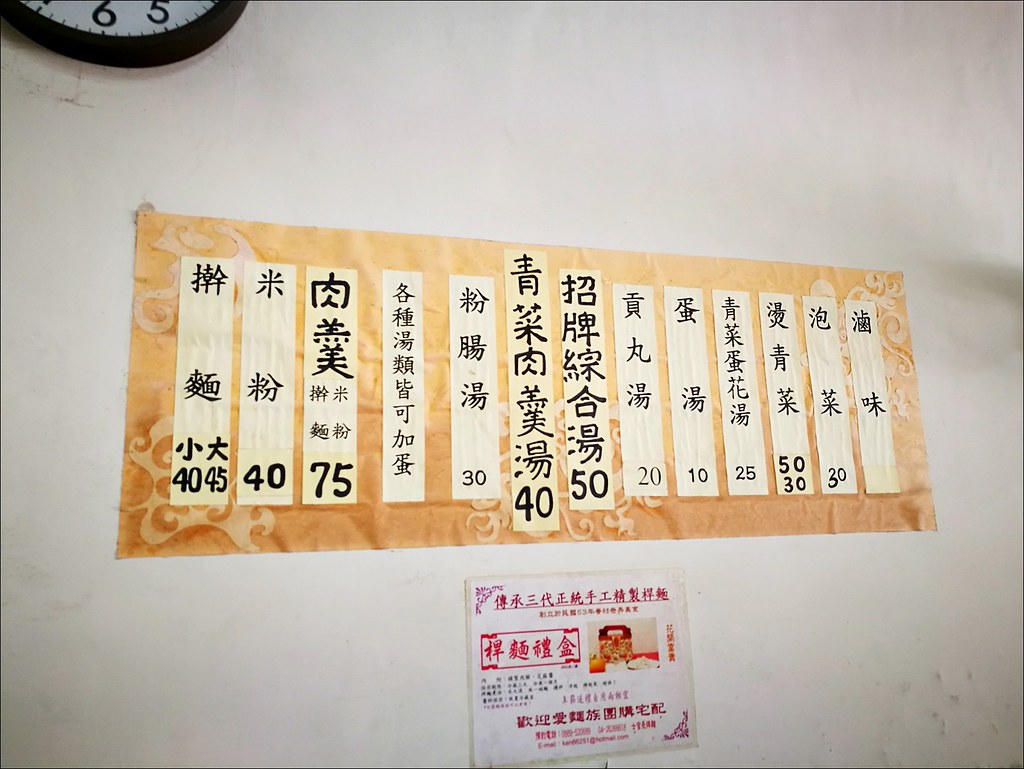 6 5
擀麵
小 大
40 45
米粉
40
肉羹
擀麵 米粉
75
各種湯類皆可加蛋
粉腸湯
30
青菜肉羹湯
40
招牌綜合湯
50
貢丸湯
20
蛋湯
10
青菜蛋花湯
25
燙青菜
50
30
泡菜
30
滷味
傳承三代正統手工精製桿麵
桿麵禮盒
花開富貴
歡迎愛麵族團購宅配